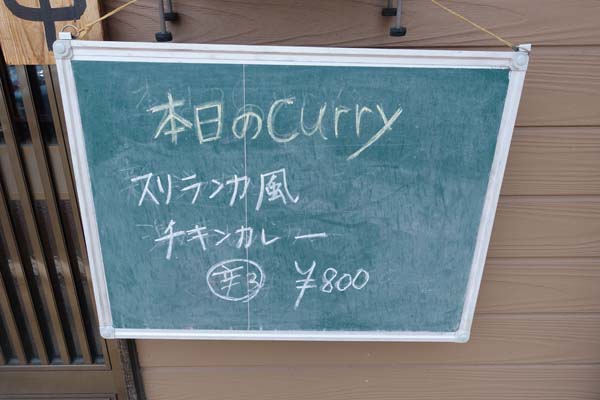 本日のCurry
スリランカ風
チキンカレー
辛3 ¥800